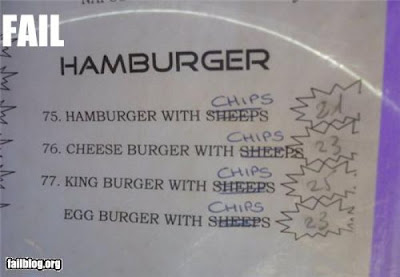 FAIL
HAMBURGER
CHIPS
75. HAMBURGER WITH SHEEPS 21
CHIPS
76. CHEESE BURGER WITH SHEEPS 23
CHIPS
77. KING BURGER WITH SHEEPS 25
CHIPS
EGG BURGER WITH SHEEPS 23
failblog.org